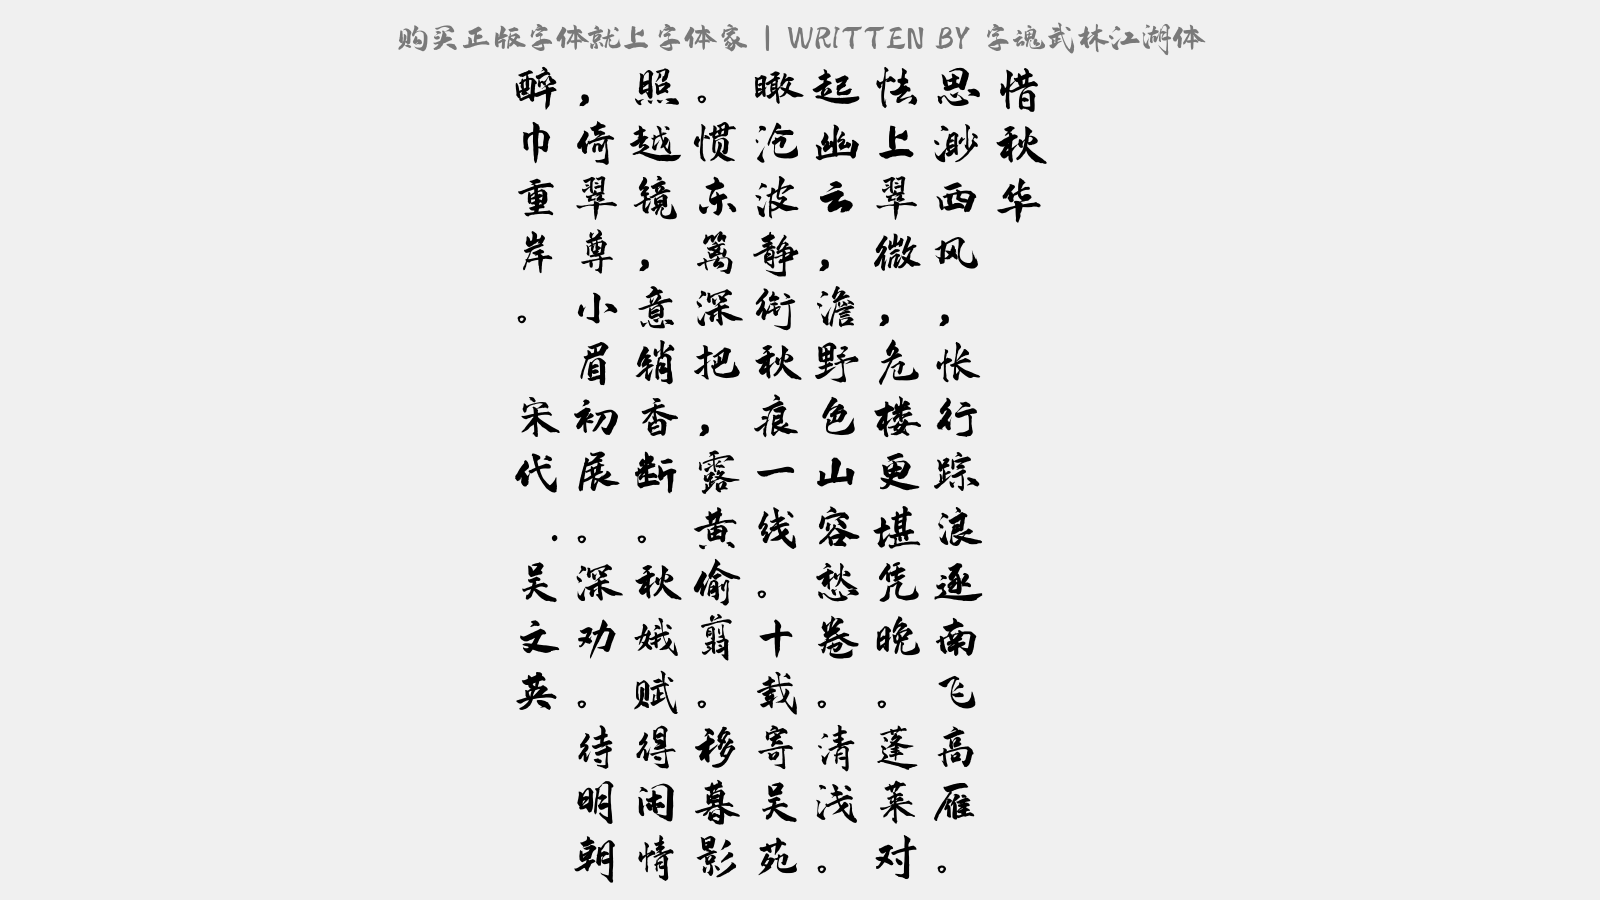 购买正版字体就上字体家 | WRITTEN BY 字魂武林江湖体
惜秋华
思渺西风，怅行踪浪逐南飞高雁。
怯上翠微，危楼更堪凭晚。蓬莱对
起幽云，澹野色山容愁卷。清浅。
瞰沧波静衔秋痕一线。十载寄吴苑
。惯东篱深把，露黄偷翦。移暮影
照越镜，意销香断。秋娥赋得闲情
，倚翠尊小眉初展。深劝。待明朝
醉巾重岸。 宋代 · 吴文英